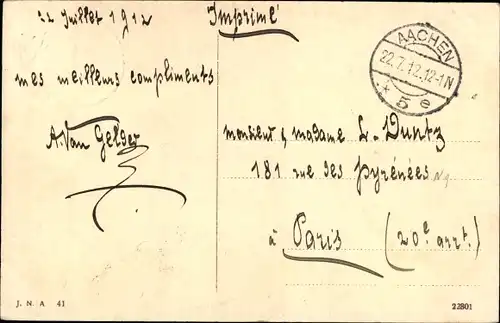 22 Juillet 1912
Imprimé
mes meilleurs compliments
A. Van Gelder
AACHEN
22.7.12.12-1N
* 5 e
monsieur & madame L. Duntz
181 rue des Pyrénées
à Paris (20e arrt.)
J. N. A 41
22801